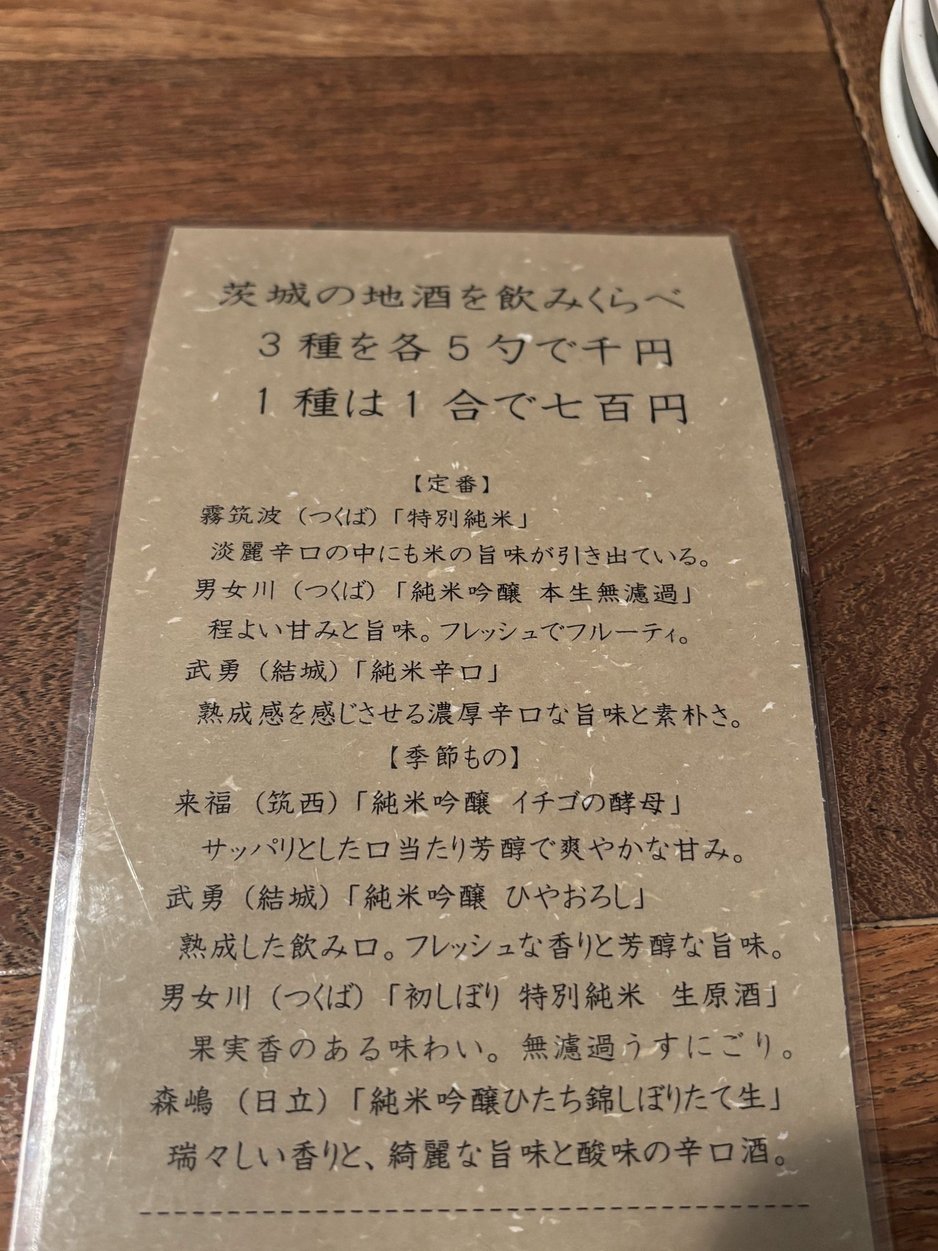 茨城の地酒を飲みくらべ
3種を各5勺で千円
1種は1合で七百円
【定番】
霧筑波（つくば）「特別純米」
淡麗辛口の中にも米の旨味が引き出ている。
男女川（つくば）「純米吟醸 本生無濾過」
程よい甘みと旨味。フレッシュでフルーティ。
武勇（結城）「純米辛口」
熟成感を感じさせる濃厚辛口な旨味と素朴さ。
【季節もの】
来福（筑西）「純米吟醸 イチゴの酵母」
サッパリとした口当たり芳醇で爽やかな甘み。
武勇（結城）「純米吟醸 ひやおろし」
熟成した飲み口。フレッシュな香りと芳醇な旨味。
男女川（つくば）「初しぼり 特別純米 生原酒」
果実香のある味わい。無濾過うすにごり。
森嶋（日立）「純米吟醸ひたち錦しぼりたて生」
瑞々しい香りと、綺麗な旨味と酸味の辛口酒。